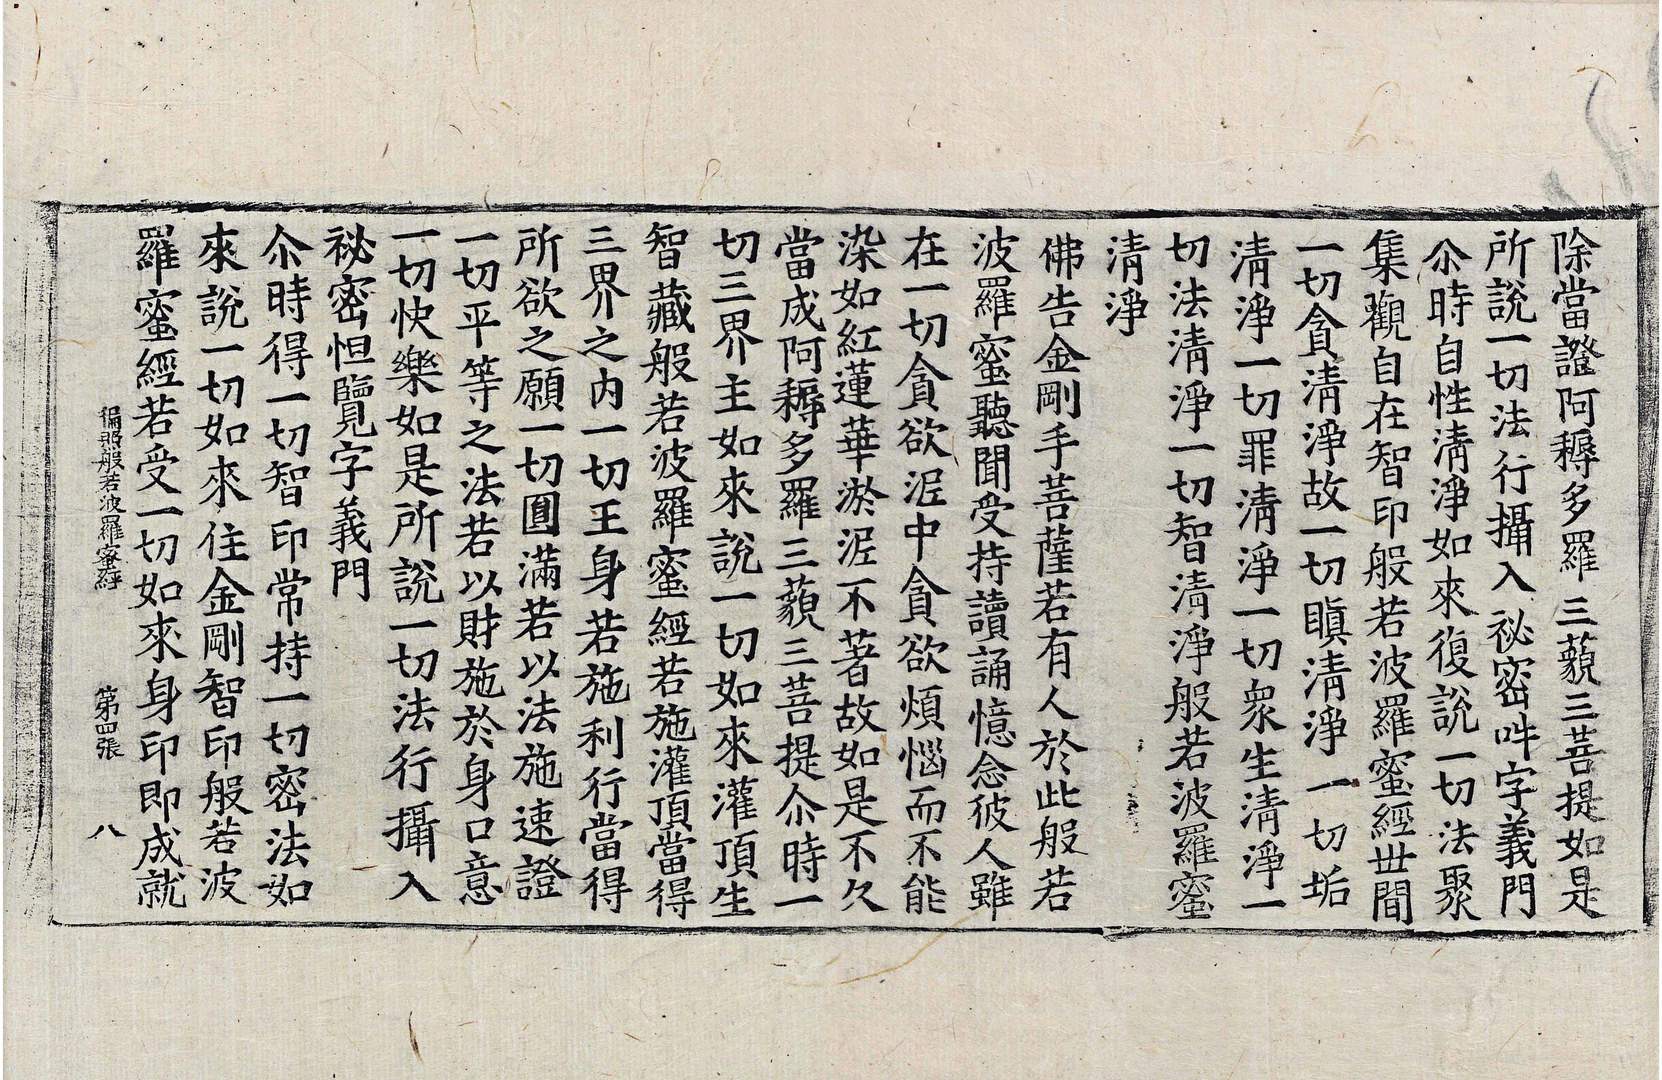 除當證阿耨多羅三藐三菩提如是
所說一切法行攝入祕密吽字義門
尒時自性淸淨如來復說一切法聚
集觀自在智印般若波羅蜜經世間
一切貪淸淨故一切瞋淸淨一切垢
淸淨一切罪淸淨一切衆生淸淨一
切法淸淨一切智淸淨般若波羅蜜
淸淨
佛告金剛手菩薩若有人於此般若
波羅蜜聽聞受持讀誦憶念彼人雖
在一切貪欲泥中貪欲煩惱而不能
染如紅蓮華淤泥不著故如是不久
當成阿耨多羅三藐三菩提尒時一
切三界主如來說一切如來灌頂生
智藏般若波羅蜜經若施灌頂當得
三界之內一切王身若施利行當得
所欲之願一切圓滿若以法施速證
一切平等之法若以財施於身口意
一切快樂如是所說一切法行攝入
祕密怛覽字義門
尒時得一切智印常持一切密法如
來說一切如來住金剛智印般若波
羅蜜經若受一切如來身印即成就
徧照般若波羅蜜經 第四張 八